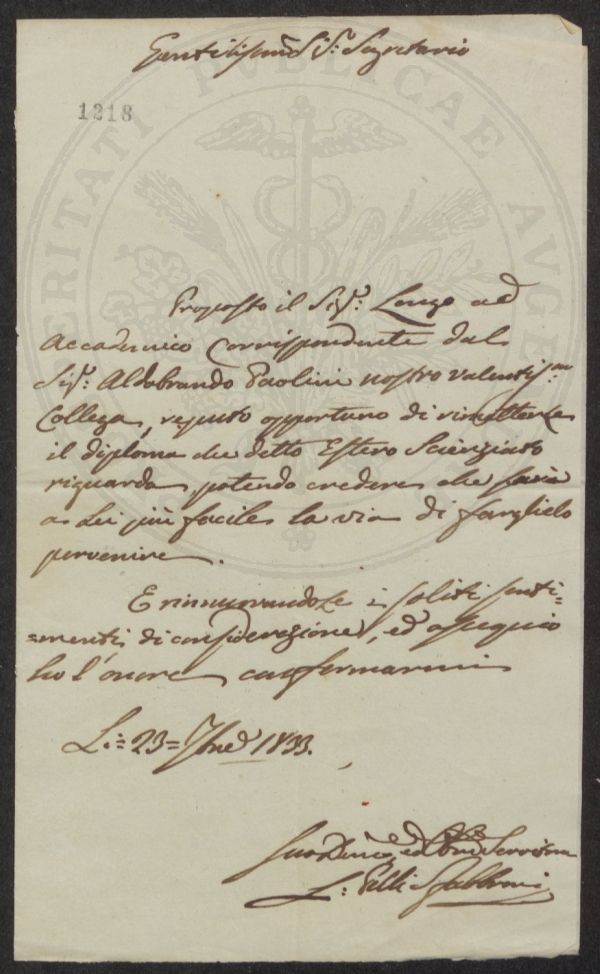 Gentilissimo Sig.r Segretario
1218
VERITATI PUBLICAE AUGE
Proposto il Sig.r Longo ad
Accademico Corrispondente dal
Sig.r Aldobrando Paolini nostro valentiss.mo
Collega, reputo opportuno di rimetterle
il diploma che detto Estero Scienziato
riguarda, potendo credere che savia
a Lei più facile la via di farglielo
pervenire.
E rinnuovandole i soliti senti=
=menti di considerazione, ed ossequio
ho l'onore confermarmi
Li= 23= 1833.
Suo ed Servitore
L: Pelli Fabbroni